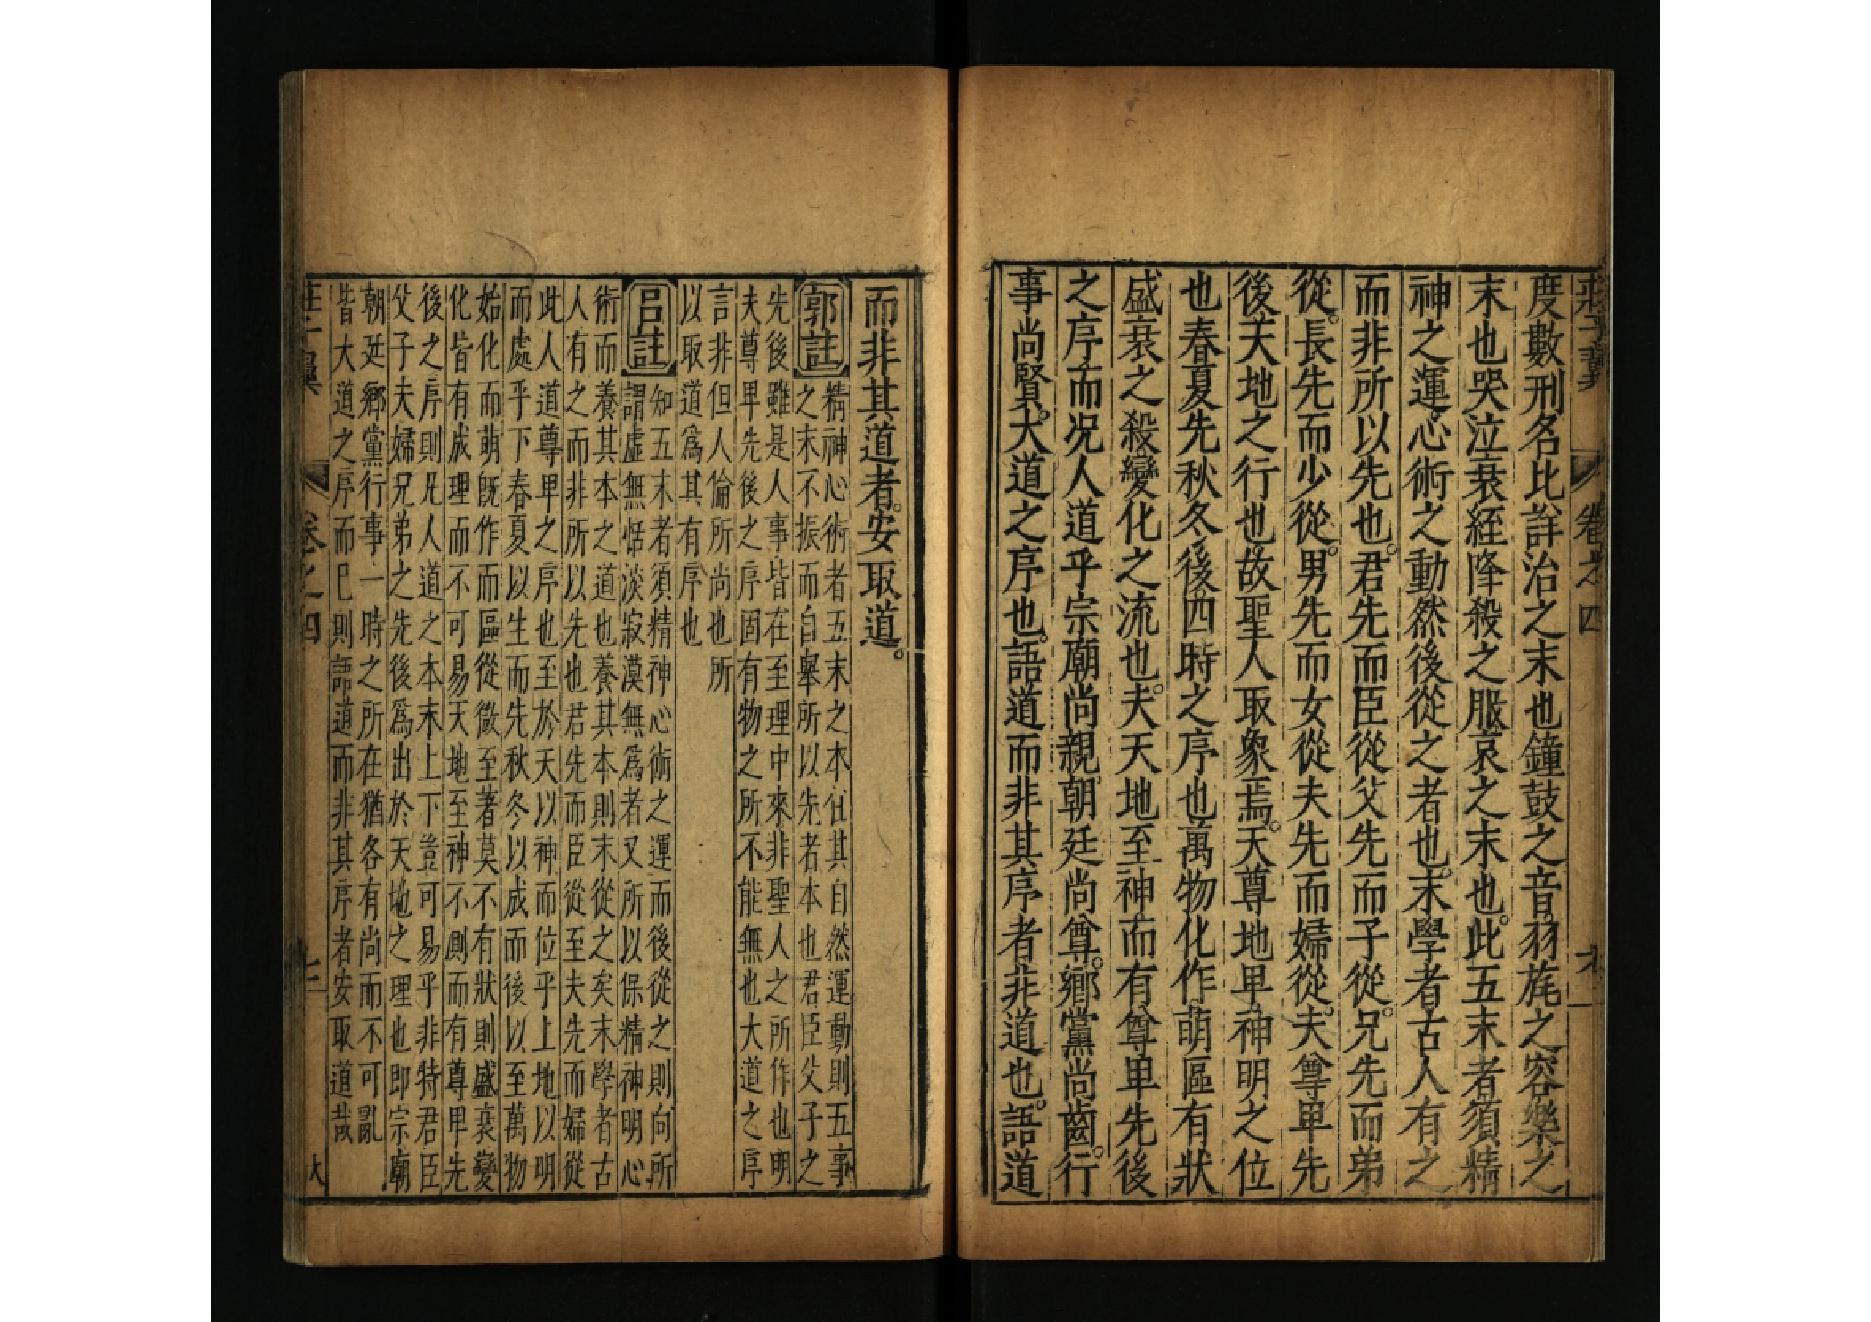 莊子翼　卷之四
度數刑名比詳治之末也鐘鼓之音羽旄之容樂之
末也哭泣衰絰降殺之服哀之末也。此五末者須精
神之運。心術之動然後從之者也。末學者古人有之
而非所以先也。君先而臣從父先而子從。兄先而弟
從。長先而少從。男先而女從夫先而婦從。夫尊卑先
後天地之行也。故聖人取象焉。天尊地卑神明之位
也春夏先秋冬後四時之序也萬物化作萌區有狀
盛衰之殺變化之流也。夫天地至神而有尊卑先後
之序而况人道乎宗廟尚親朝廷尚尊。鄉黨尚齒。行
事尚賢。大道之序也。語道而非其序者非道也。語道
而非其道者。安取道。
郭註
精神心術者五末之本任其自然運動則五事
之末不振而自舉所以先者本也君臣父子之
先後雖是人事皆在至理中來非聖人之所作也明
夫尊卑先後之序固有物之所不能無也大道之序
言非但人倫所尚也所
以取道爲其有序也
呂註
知五末者須精神心術之運而後從之則向所
謂虛無恬淡寂漠無爲者又所以保精神明心
術而養其本之道也養其本則末從之矣末學者古
人有之而非所以先也君先而臣從至夫先而婦從
此人道尊卑之序也至於天以神而位乎上地以明
而處乎下春夏以生而先秋冬以成而後以至萬物
始化而萌既作而區從微至著莫不有狀則盛衰變
化皆有成理而不可易天地至神不測而有尊卑先
後之序則况人道之本末上下豈可易乎非特君臣
父子夫婦兄弟之先後爲出於天地之理也即宗廟
朝廷鄉黨行事一時之所在猶各有尚而不可亂
皆大道之序而已則語道而非其序者安取道哉
莊子翼　卷之四